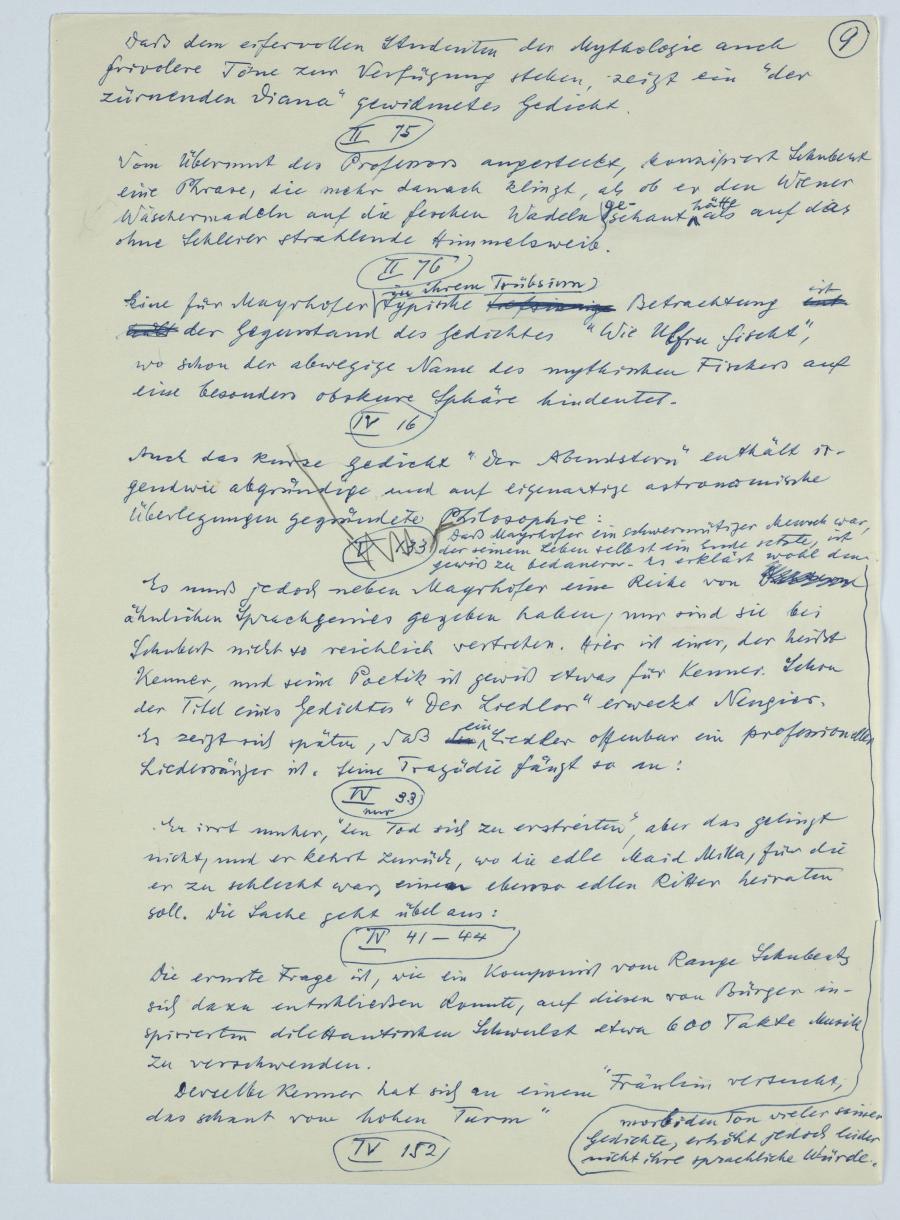 9
Daß dem eifervollen Studenten der Mythologie auch
frivolere Töne zur Verfügung stehen, zeigt ein "der
zürnenden Diana" gewidmetes Gedicht.
II 75
Vom Übermut des Professors angesteckt, konzipiert Schubert
eine Phrase, die mehr danach klingt, als ob er den Wiener
Wäschermadeln auf die feschen Wadeln geschaut hätte als auf das
ohne Schleier strahlende Himmelsweib.
II 76
Eine für Mayrhofer in ihrem Trübsinn typische Betrachtung ist
der Gegenstand des Gedichtes "Wie Ulfru fischt",
wo schon der abwegige Name des mythischen Fischers auf
eine besonders obskure Sphäre hindeutet.
IV 16
Auch das kurze Gedicht "Der Abendstern" enthält ir-
gendwie abgründige und auf eigenartige astronomische
Überlegungen gegründete Philosophie:
133
Daß Mayrhofer ein schwermütiger Mensch war,
der seinem Leben selbst ein Ende setzte, ist
gewiß zu bedauern. Es erklärt wohl den
Es muß jedoch neben Mayrhofer eine Reihe von
ähnlichen Sprachgenies gegeben haben, nur sind sie bei
Schubert nicht so reichlich vertreten. Hier ist einer, der heißt
Kenner, und seine Poetik ist gewiß etwas für Kenner. Schon
der Titel eines Gedichtes "Der Liedler" erweckt Neugier.
Es zeigt sich später, daß ein Liedler offenbar ein professioneller
Liedersänger ist. Seine Tragödie fängt so an:
IV 33
nur
Er irrt umher, "den Tod sich zu erstreiten", aber das gelingt
nicht, und er kehrt zurück, wo die edle Maid Milla, für die
er zu schlecht war, einen ebenso edlen Ritter heiraten
soll. Die Sache geht übel aus:
IV 41 – 44
Die ernste Frage ist, wie ein Komponist vom Range Schuberts
sich dazu entschließen konnte, auf diesen von Bürger in-
spirierten dilettantischen Schwulst etwa 600 Takte Musik
zu verschwenden.
Derselbe Kenner hat sich an einem "Fräulein versucht,
das schaut vom hohen Turm"
IV 152
morbiden Ton vieler seiner
Gedichte, erhöht jedoch leider
nicht ihre sprachliche Würde.